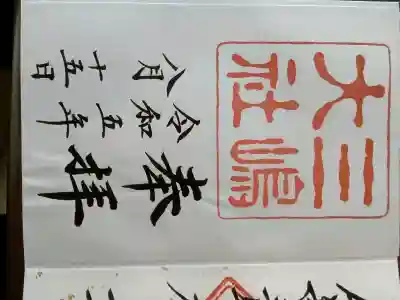 奉拝
令和五年
八月十五日
三嶋
大社